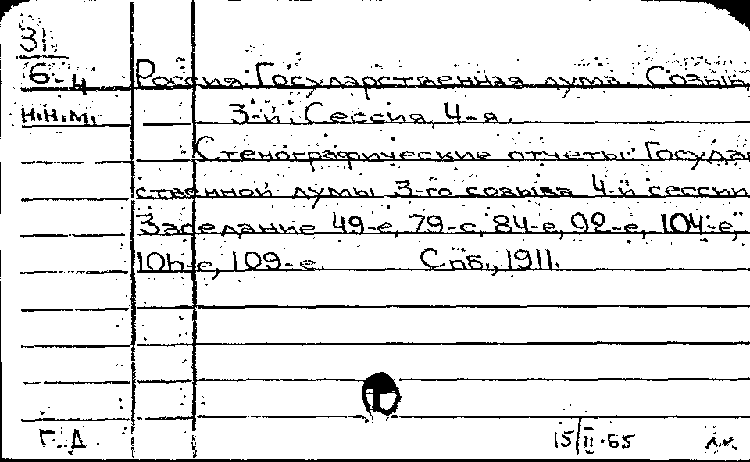 3
6-4
Россия. Государственная дума. Созыв,
Н.Н.М.
3-й. Сессия, 4-я.
Стенографические отчеты Госуда
ственной думы 3-го созыва 4-й сессии
Заседание 49-е, 79-е, 84-е, 92-е, 104-е,
109-е. Спб., 1911.
Г. Д
15/II-65